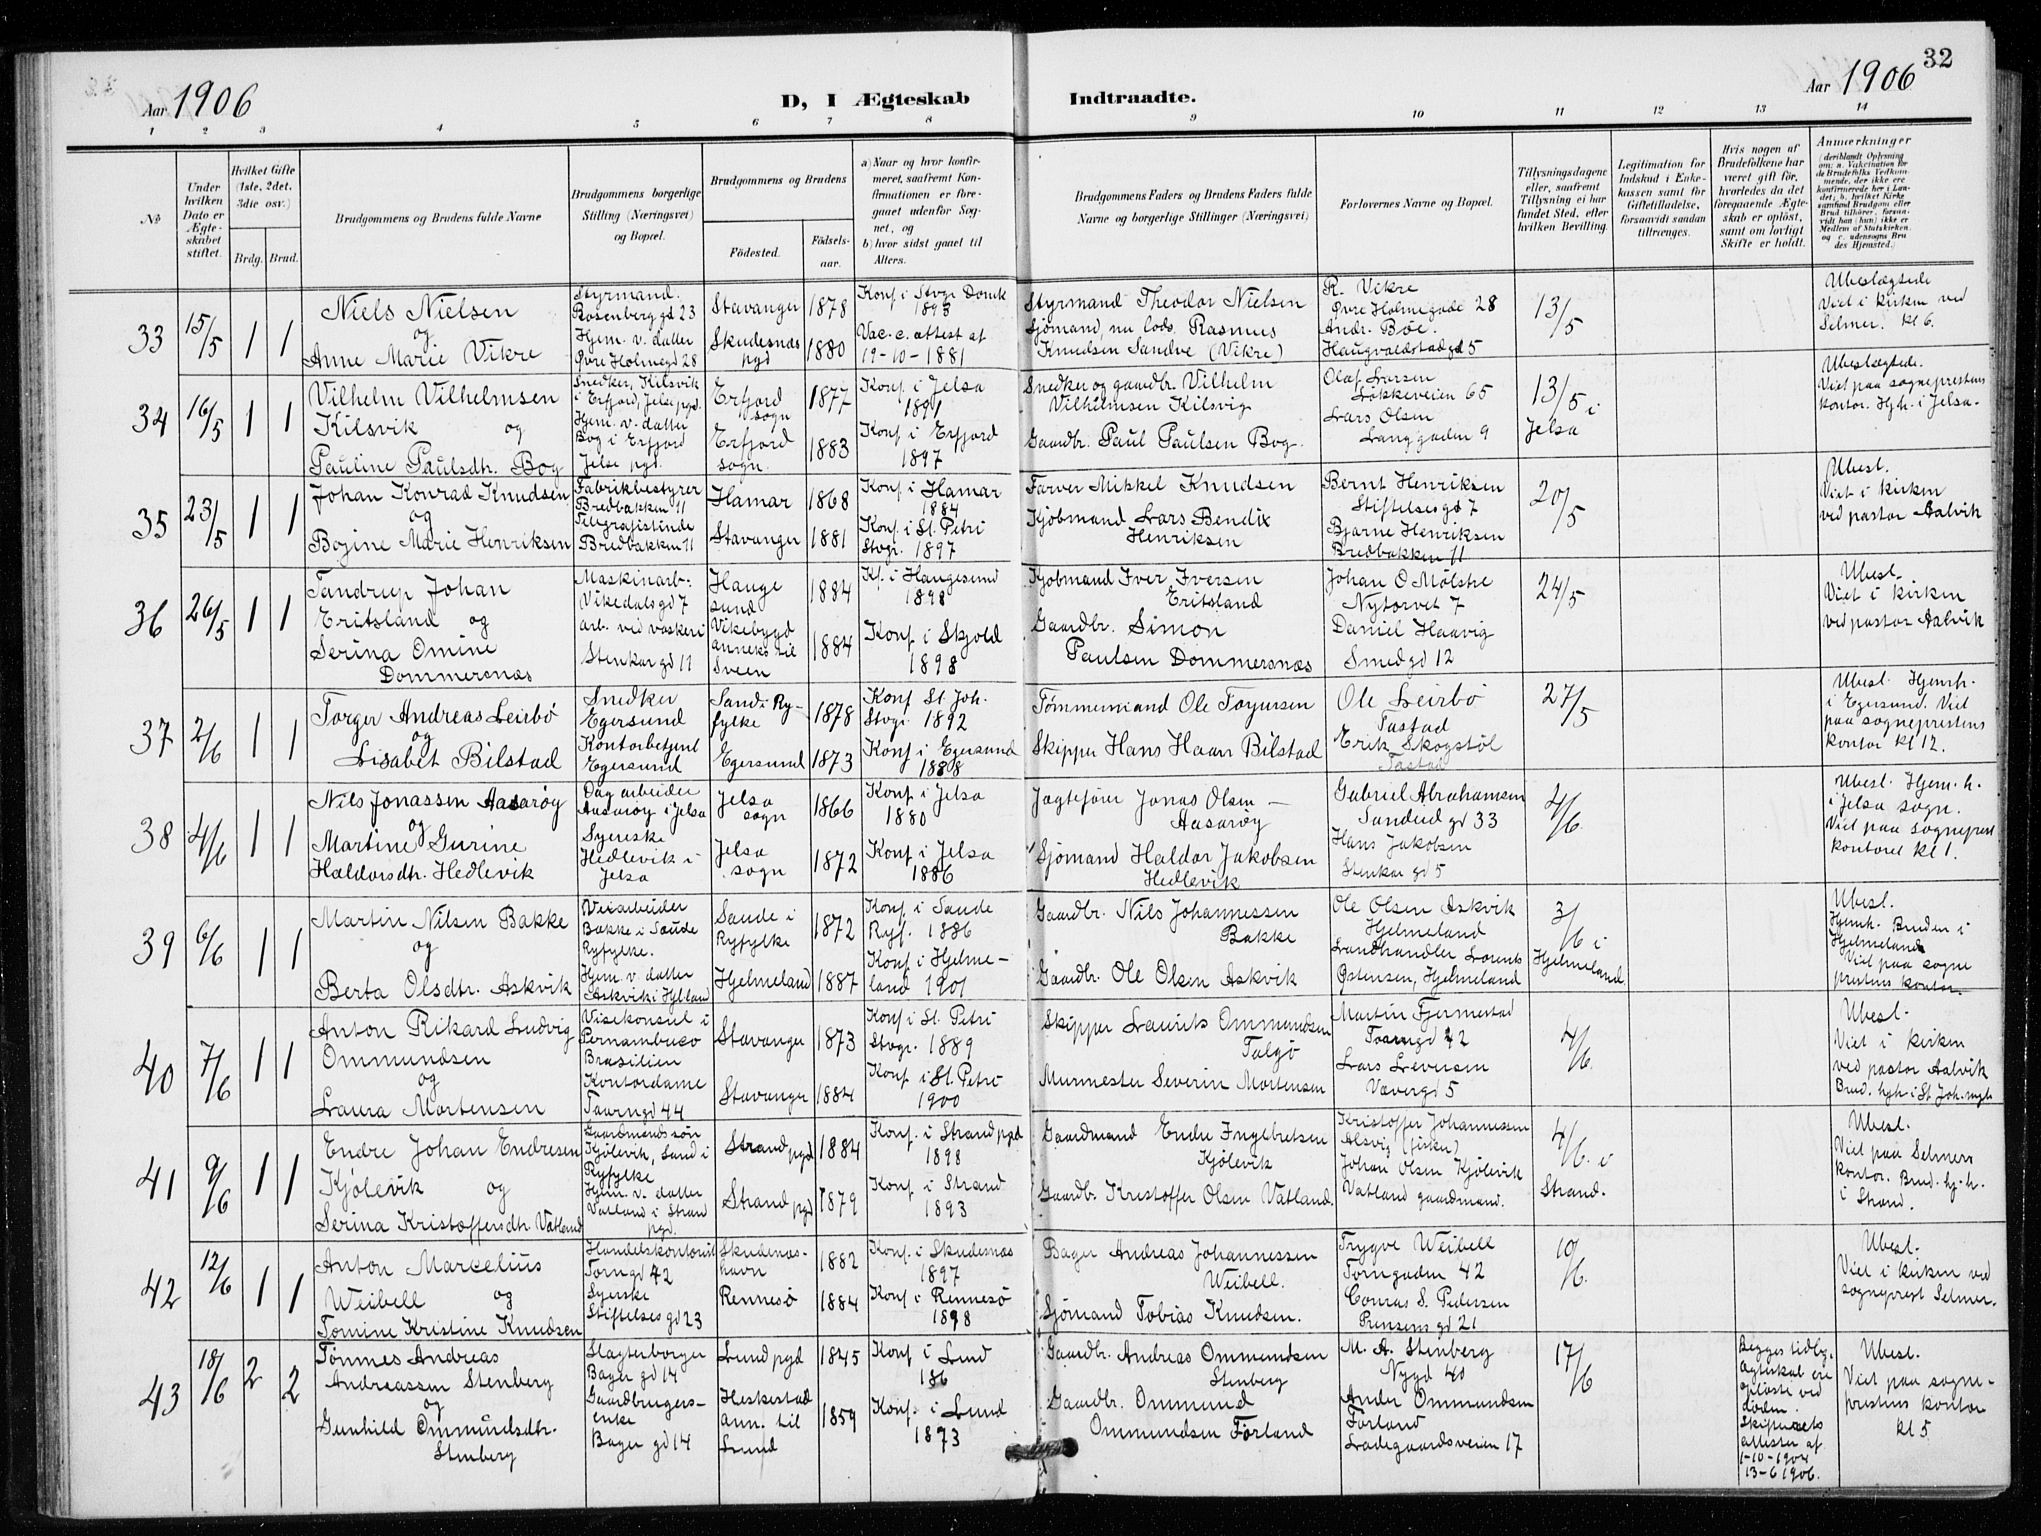 Aar 1906
D, I Ægteskab Indtraadte.
Aar 1906
32
1 2 3 4 5 6 7 8 9 10 11 12 13 14
No
Under hvilken Dato er Ægteskabet stiftet.
Hvilket Gifte (1ste, 2det, 3die osv.)
Brdg. Brud.
Brudgommens og Brudens fulde Navne
Brudgommens borgerlige Stilling (Næringsvei) og Bopæl.
Brudgommens og Brudens
Fødested.
Fødselsaar.
a) Naar og hvor konfirmeret, saafremt Konfirmationen er foregaaet udenfor Sognet, og
b) hvor sidst gaaet til Alters.
Brudgommens Faders og Brudens Faders fulde Navne og borgerlige Stillinger (Næringsvei)
Forlovernes Navne og Bopæl.
Tillysningsdagene eller, saafremt Tillysning ei har fundet Sted, efter hvilken Bevilling.
Legitimation for Indskud i Enkekassen samt for Giftetilladelse, forsaavidt saadan tiltrænges.
Hvis nogen af Brudefolkene har været gift før, hvorledes da det foregaaende Ægteskab er opløst, samt om lovligt Skifte er holdt.
Anmærkninger
(deriblandt Oplysning om: a. Vakcination for de Brudefolks Vedkommende, der ikke ere konfirmerede her i Landet; b. hvilket Kirkesamfund Brudgom eller Brud tilhører, forsaavidt han (hun) ikke er Medlem af Statskirken, og c. udensogns Brudes Hjemsted.)
33 15/5 1 1
Niels Nielsen
og
Anne Marie Vikre
Styrmand.
Rosenberg gd 23
Hjem. v. datter
Øvre Holmegd 28
Stavanger 1878
Skudesnæs pgd 1880
Konf i Stvgr Domk
1893
Vac. c. attest af
19-10-1881
Styrmand Theodor Nielsen
Sjömand, nu lods, Rasmus
Knudsen Sandve (Vikre)
R. Vikre
Øvre Holmegade 28
Andr. Böe.
Haugvaldstadgd 5
13/5
Ubeslægtede
Viet i kirken ved
Selmer. Kl 6.
34 16/5 1 1
Vilhelm Vilhelmsen
Kilsvik og
Pauline Paulsdtr. Bog
Snedker, Kilsvik
i Erfjord, Jelse pgd.
Hjem. v. datter
Bog i Erfjord
Jelse pgd.
Erfjord sogn 1877
Erfjord sogn. 1883
Konf. i Jelsa
1891
Konf. i Erfjord
1897
Snedker og gaardbr. Vilhelm
Vilhelmsen Kilsvig
Gaardbr. Paul Paulsen Bog.
Olaf Larsen
Løkkeveien 65
Lars Olsen
Langgaden 9
13/5 i
Jelsa
Ubeslægtede.
Viet paa sogneprestens
kontor. Hjh. i Jelsa.
35 23/5 1 1
Johan Konrad Knudsen
og
Bojine Marie Henriksen
Fabrikbestyrer
Bredbakken 11
Telegrafistinde
Bredbakken 11
Hamar 1868
Stavanger 1881
Konf i Hamar
1884
Konf. i St. Petri
Stvgr. 1897
Farver Mikkel Knudsen
Kjöbmand Lars Bendix
Henriksen
Bernt Henriksen
Stiftelsesgd 7
Bjarne Henriksen
Bredbakken 11
20/5
Ubesl.
Viet i kirken
ved pastor Aalvik
36 26/5 1 1
Tandrup Johan
Eritsland og
Serina Omine
Dommersnæs
Maskinarb.
Vikedalsgd 7
arb. ved vaskeri
Stenkargd 11
Haugesund 1884
Vikebygd
anneks til
Sveen 1884
Kf. i Haugesund
1898
Konf i Skjold
1898
Kjöbmand Iver Iversen
Eritsland
Gaardbr. Simon
Paulsen Dommersnæs
Johan O Mölstre
Nytorvet 7
Daniel Haavig
Smedgd 12
24/5
Ubesl.
Viet i kirken
ved pastor Aalvik
37 2/6 1 1
Torger Andreas Leirbö
og
Lisabet Bilstad
Snedker
Egersund
Kontorbetjent
Egersund
Sand i Ryfylke 1878
Egersund 1873
Konf St Joh.
Stvgr. 1892
Konf i Egersund
1888
Tömmermand Ole Torjersen
Skipper Hans Haarr Bilstad
Ole Leirbö
Tastad
Erik Skogstöl
Tastad
27/5
Ubesl. Hjemh.
i Egersund. Viet
paa sogneprestens
kontor kl 12.
38 4/6 1 1
Nils Jonassen Aasaröy
og
Martine Gurine
Haldorsdtr. Hedlevik
Dagarbeider
Aasaröy i Jelsa
Syerske
Hedlevik i
Jelsa
Jelsa sogn 1866
Jelsa sogn 1872
Konf i Jelsa
1880
Konf i Jelsa
1886
Jagtefører Jonas Olsen
Aasaröy
Sjömand Haldor Jakobsen
Hedlevik
Gabriel Abrahamsen
Sandeid gd 33
Hans Jakobsen
Stenkar gd 5
4/6
Ubesl. Hjem.h.
i Jelsa sogn.
Viet paa sogneprest
kontoret kl 1.
39 6/6 1 1
Martin Nilsen Bakke
og
Berta Olsdtr. Askvik
Veiarbeider
Bakke i Saude
Ryfylke.
Hjem v. datter
Askvik i Hjl.land
Saude i Ryfylke 1872
Hjelmeland 1887
Konf. i Saude
Ryf. 1886
Konf i Hjelmeland 1901
Gaardbr. Nils Johannessen
Bakke
Gaardbr. Ole Olsen Askvik
Ole Olsen Askvik
Hjelmeland
Landhandler Lorents
Østensen, Hjelmeland
3/6 i
Hjelmeland
Ubesl.
Hjemh. Bruden i
Hjelmeland
Viet paa sogne
prestens kontor.
40 7/6 1 1
Anton Rikard Ludvig
Ommundsen
og
Laura Mortensen
Visekonsul i
Pernambuco
Brasilien
Kontordame
Taarngd 44
Stavanger 1873
Stavanger 1884
Konf i St. Petri
Stvgr. 1889
Konf i St. Petri
1900
Skipper Laurits Ommundsen
Talgö
Murmester Severin Mortensen
Martin Fjermestad
Taarngd 42
Lars Leversen
Vævergd 5
4/6
Ubesl.
Viet i kirken
ved pastor Aalvik
Brud. hjh i St Joh.
41 9/6 1 1
Endre Johan Endresen
Kjölevik og
Serina Kristoffersdtr. Vatland
Gaardmandssön
Kjölevik, Sand i
Ryfylke
Hjem. v. datter
Vatland i Strand
pgd.
Strand pgd 1884
Strand pgd 1879
Konf. i Strand pgd
1898
Konf. i Strand
1893
Gaardmand Endre Ingebretsen
Kjölevik
Gaardbr. Kristoffer Olsen Vatland.
Kristoffer Johannessen
Alsvig
Johan Olsen Kjölevik
Vatland gaardmand.
4/6 i
Strand.
Ubesl.
Viet paa Selmers
kontor. Brud. hj.h.
i Strand.
42 12/6 1 1
Anton Marcelius
Weibell og
Tomine Kristine Knudsen
Handelskontorist
Torngd 42
Syerske
Stiftelsesgd 23
Skudenæshavn 1882
Rennesö 1884
Konf. i Skudesnæs
1897
Konf i Rennesö
1898
Bager Andreas Johannessen
Weibell.
Sjömand Tobias Knudsen.
Trygve Weibell
Torngaden 42
Conrad S. Pedersen
Prinsensgd 21
10/6
Ubesl.
Viet i kirken ved
sogneprest Selmer.
43 18/6 2 2
Tønnes Andreas
Andreassen Stenberg
og
Gunhild Ommundsdtr.
Stenberg
Slagterborger
Bager gd 14
Gaardbrugersenke
Bager gd 14
Lund pgd 1845
Heskestad
ann. til
Lund 1859
Konf i Lund
186
Konf. i Lund
1873
Gaardbr. Andreas Ommundsen
Stenberg
Gaardbr. Ommund
Ommundsen Förland
M. A. Stenberg
Nygd 40
Ander Ommundsen
Förland
Ladegaardsveien 17
17/6
Begges tidlg.
ægteskab ere
opløste ved
døden.
Skifterets
attester af
1-10-1904
13-6 1906.
Ubesl.
Viet paa sogneprestens kontor
kl 5